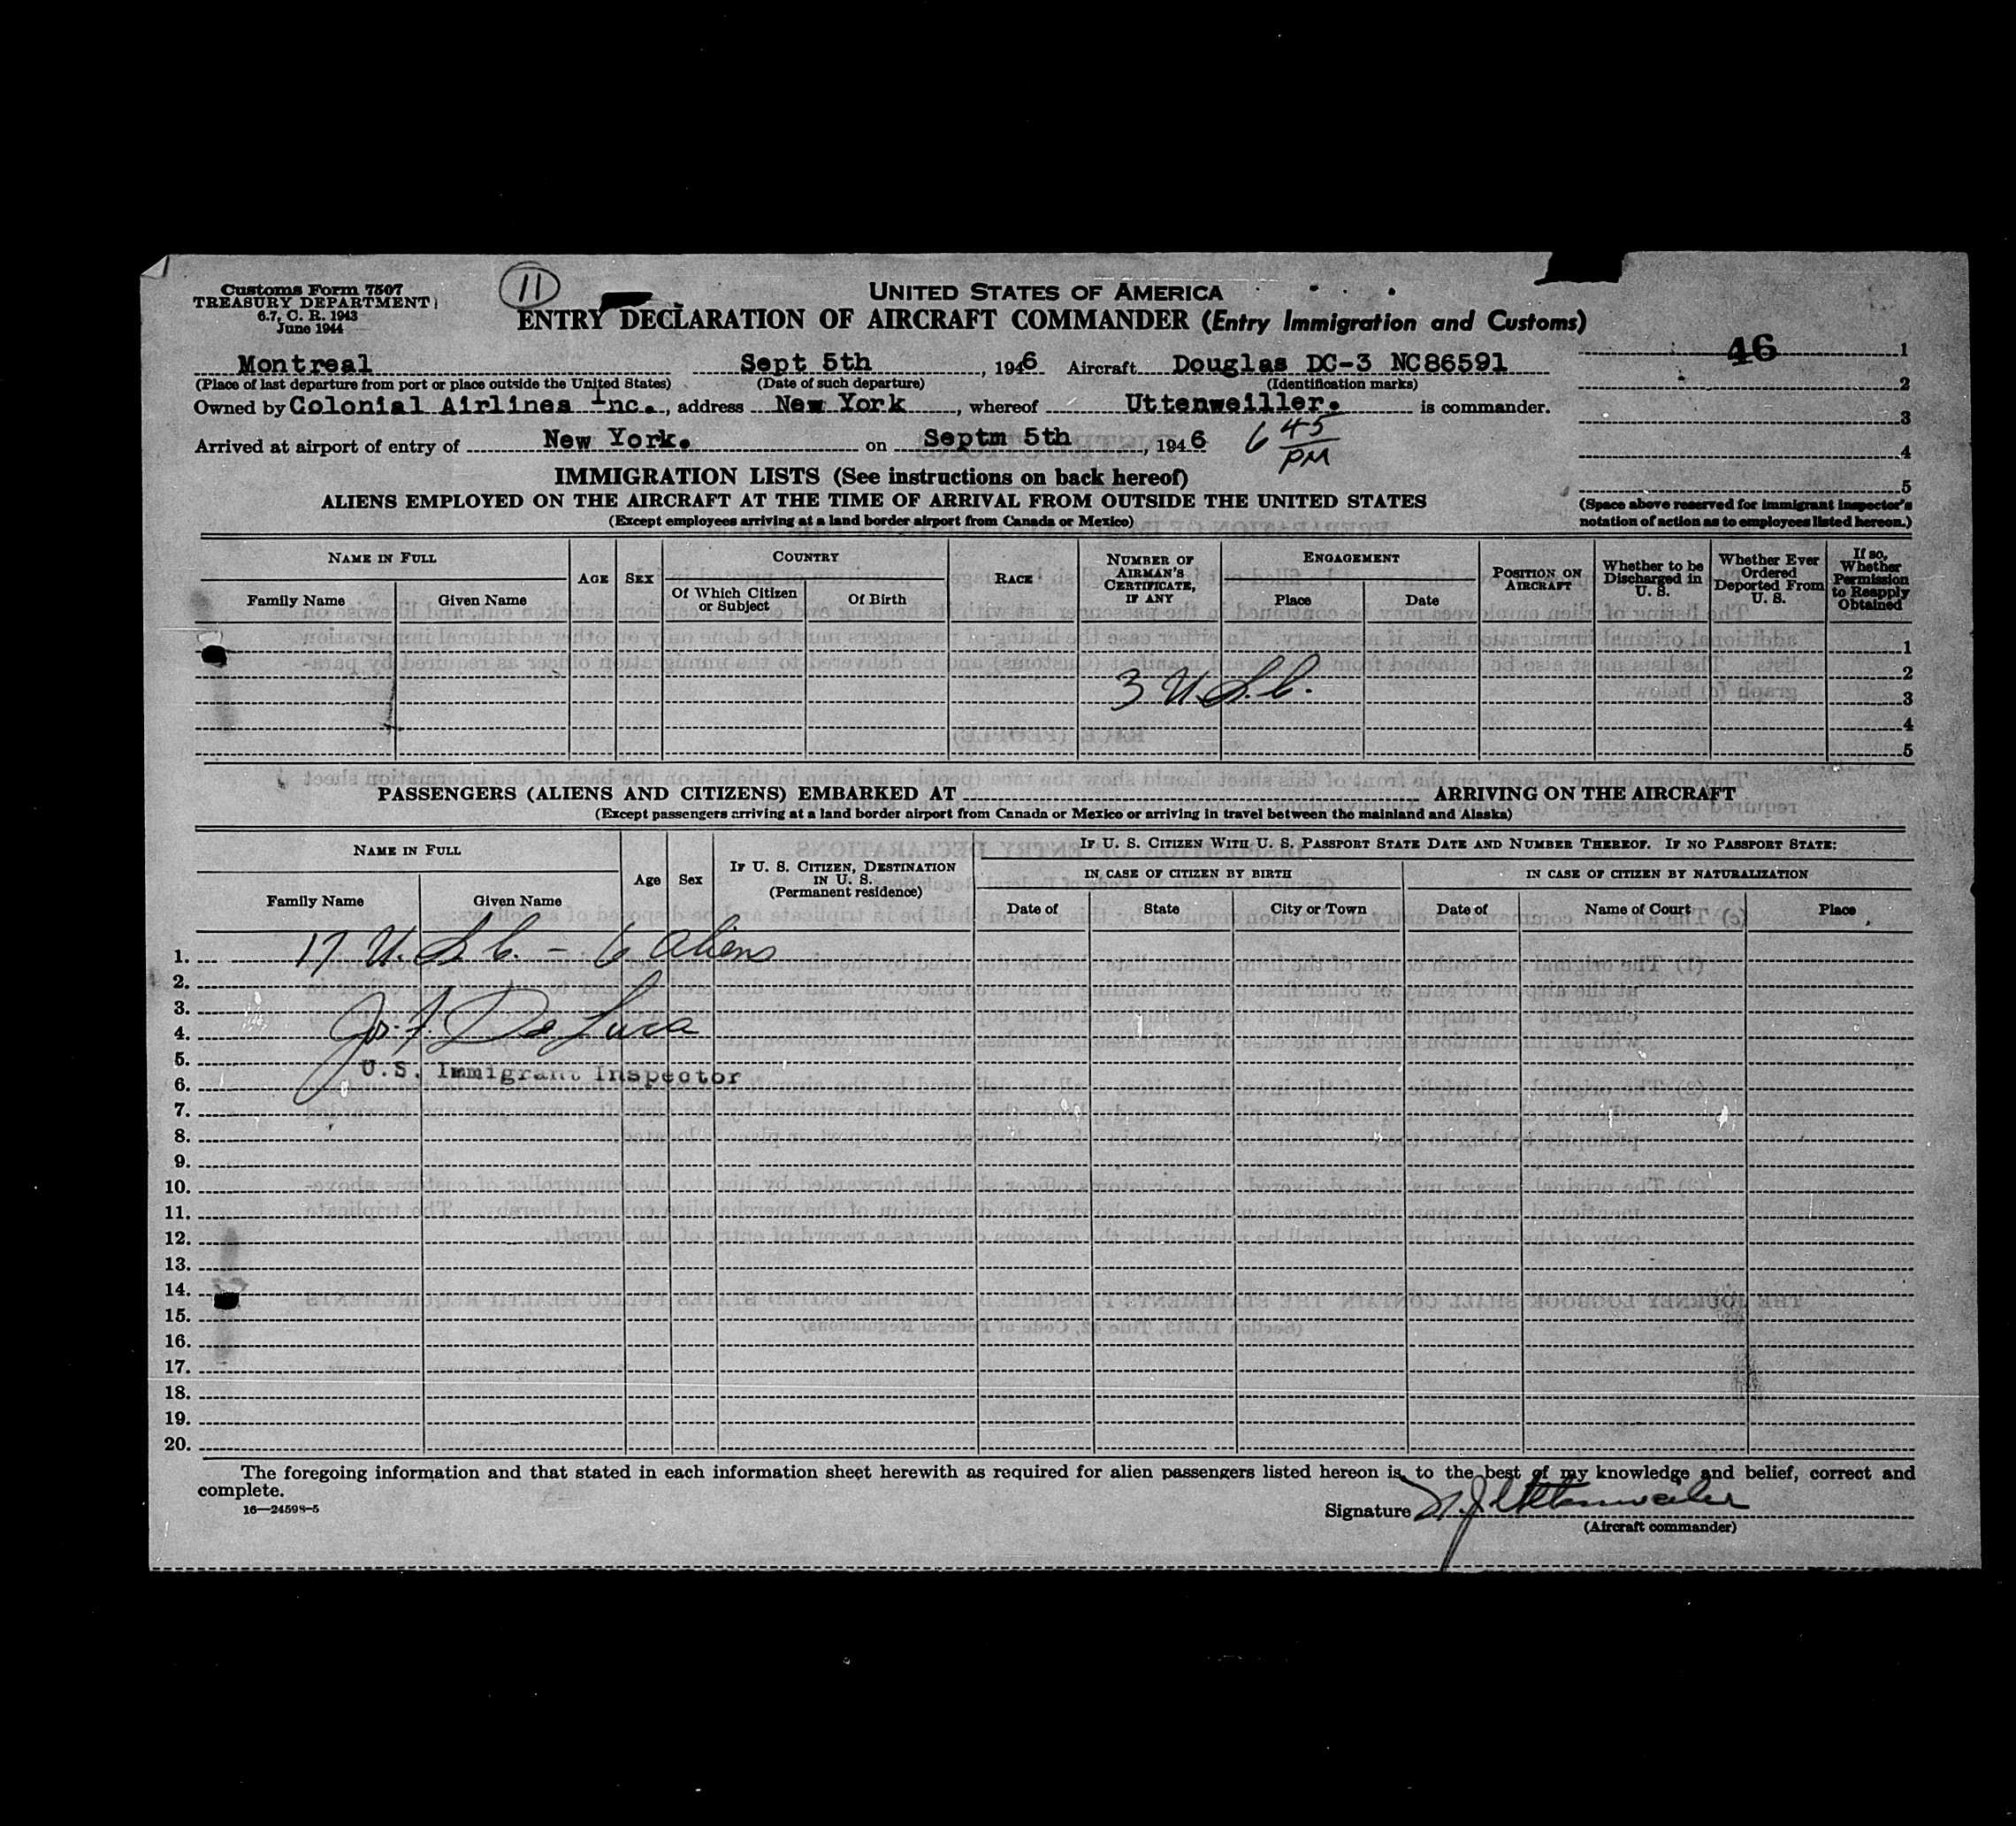 Customs Form 7507
TREASURY DEPARTMENT
6.7, C. R. 1943
June 1944
11
UNITED STATES OF AMERICA
ENTRY DECLARATION OF AIRCRAFT COMMANDER (Entry Immigration and Customs)
Montreal Sept 5th, 1946 Aircraft Douglas DC-3 NC86591
(Place of last departure from port or place outside the United States) (Date of such departure) (Identification marks)
Owned by Colonial Airlines Inc., address New York, whereof Uttenweiller. is commander.
Arrived at airport of entry of New York. on Septm 5th, 1946 6 45 PM
46 1
2
3
4
5
(Space above reserved for immigrant inspector's notation of action as to employees listed hereon.)
IMMIGRATION LISTS (See instructions on back hereof)
ALIENS EMPLOYED ON THE AIRCRAFT AT THE TIME OF ARRIVAL FROM OUTSIDE THE UNITED STATES
(Except employees arriving at a land border airport from Canada or Mexico)
NAME IN FULL
Family Name Given Name
AGE SEX
COUNTRY
Of Which Citizen or Subject Of Birth
RACE
NUMBER OF AIRMAN'S CERTIFICATE, IF ANY
ENGAGEMENT
Place Date
POSITION ON AIRCRAFT
Whether to be Discharged in U. S.
Whether Ever Ordered Deported From U. S.
If so, Whether Permission to Reapply Obtained
1
2
3 U.S.C. 3
4
5
PASSENGERS (ALIENS AND CITIZENS) EMBARKED AT ARRIVING ON THE AIRCRAFT
(Except passengers arriving at a land border airport from Canada or Mexico or arriving in travel between the mainland and Alaska)
NAME IN FULL
Family Name Given Name
Age Sex
IF U. S. CITIZEN, DESTINATION IN U. S.
(Permanent residence)
IF U. S. CITIZEN WITH U. S. PASSPORT STATE DATE AND NUMBER THEREOF. IF NO PASSPORT STATE:
IN CASE OF CITIZEN BY BIRTH IN CASE OF CITIZEN BY NATURALIZATION
Date of State City or Town Date of Name of Court Place
1. 17 U.S.C. - 6 Aliens
2.
3.
4. Jos. F. De Luca
5.
U.S. Immigrant Inspector
6.
7.
8.
9.
10.
11.
12.
13.
14.
15.
16.
17.
18.
19.
20.
The foregoing information and that stated in each information sheet herewith as required for alien passengers listed hereon is, to the best of my knowledge and belief, correct and
complete.
16—24598-5
Signature Uttenweiler
(Aircraft commander)